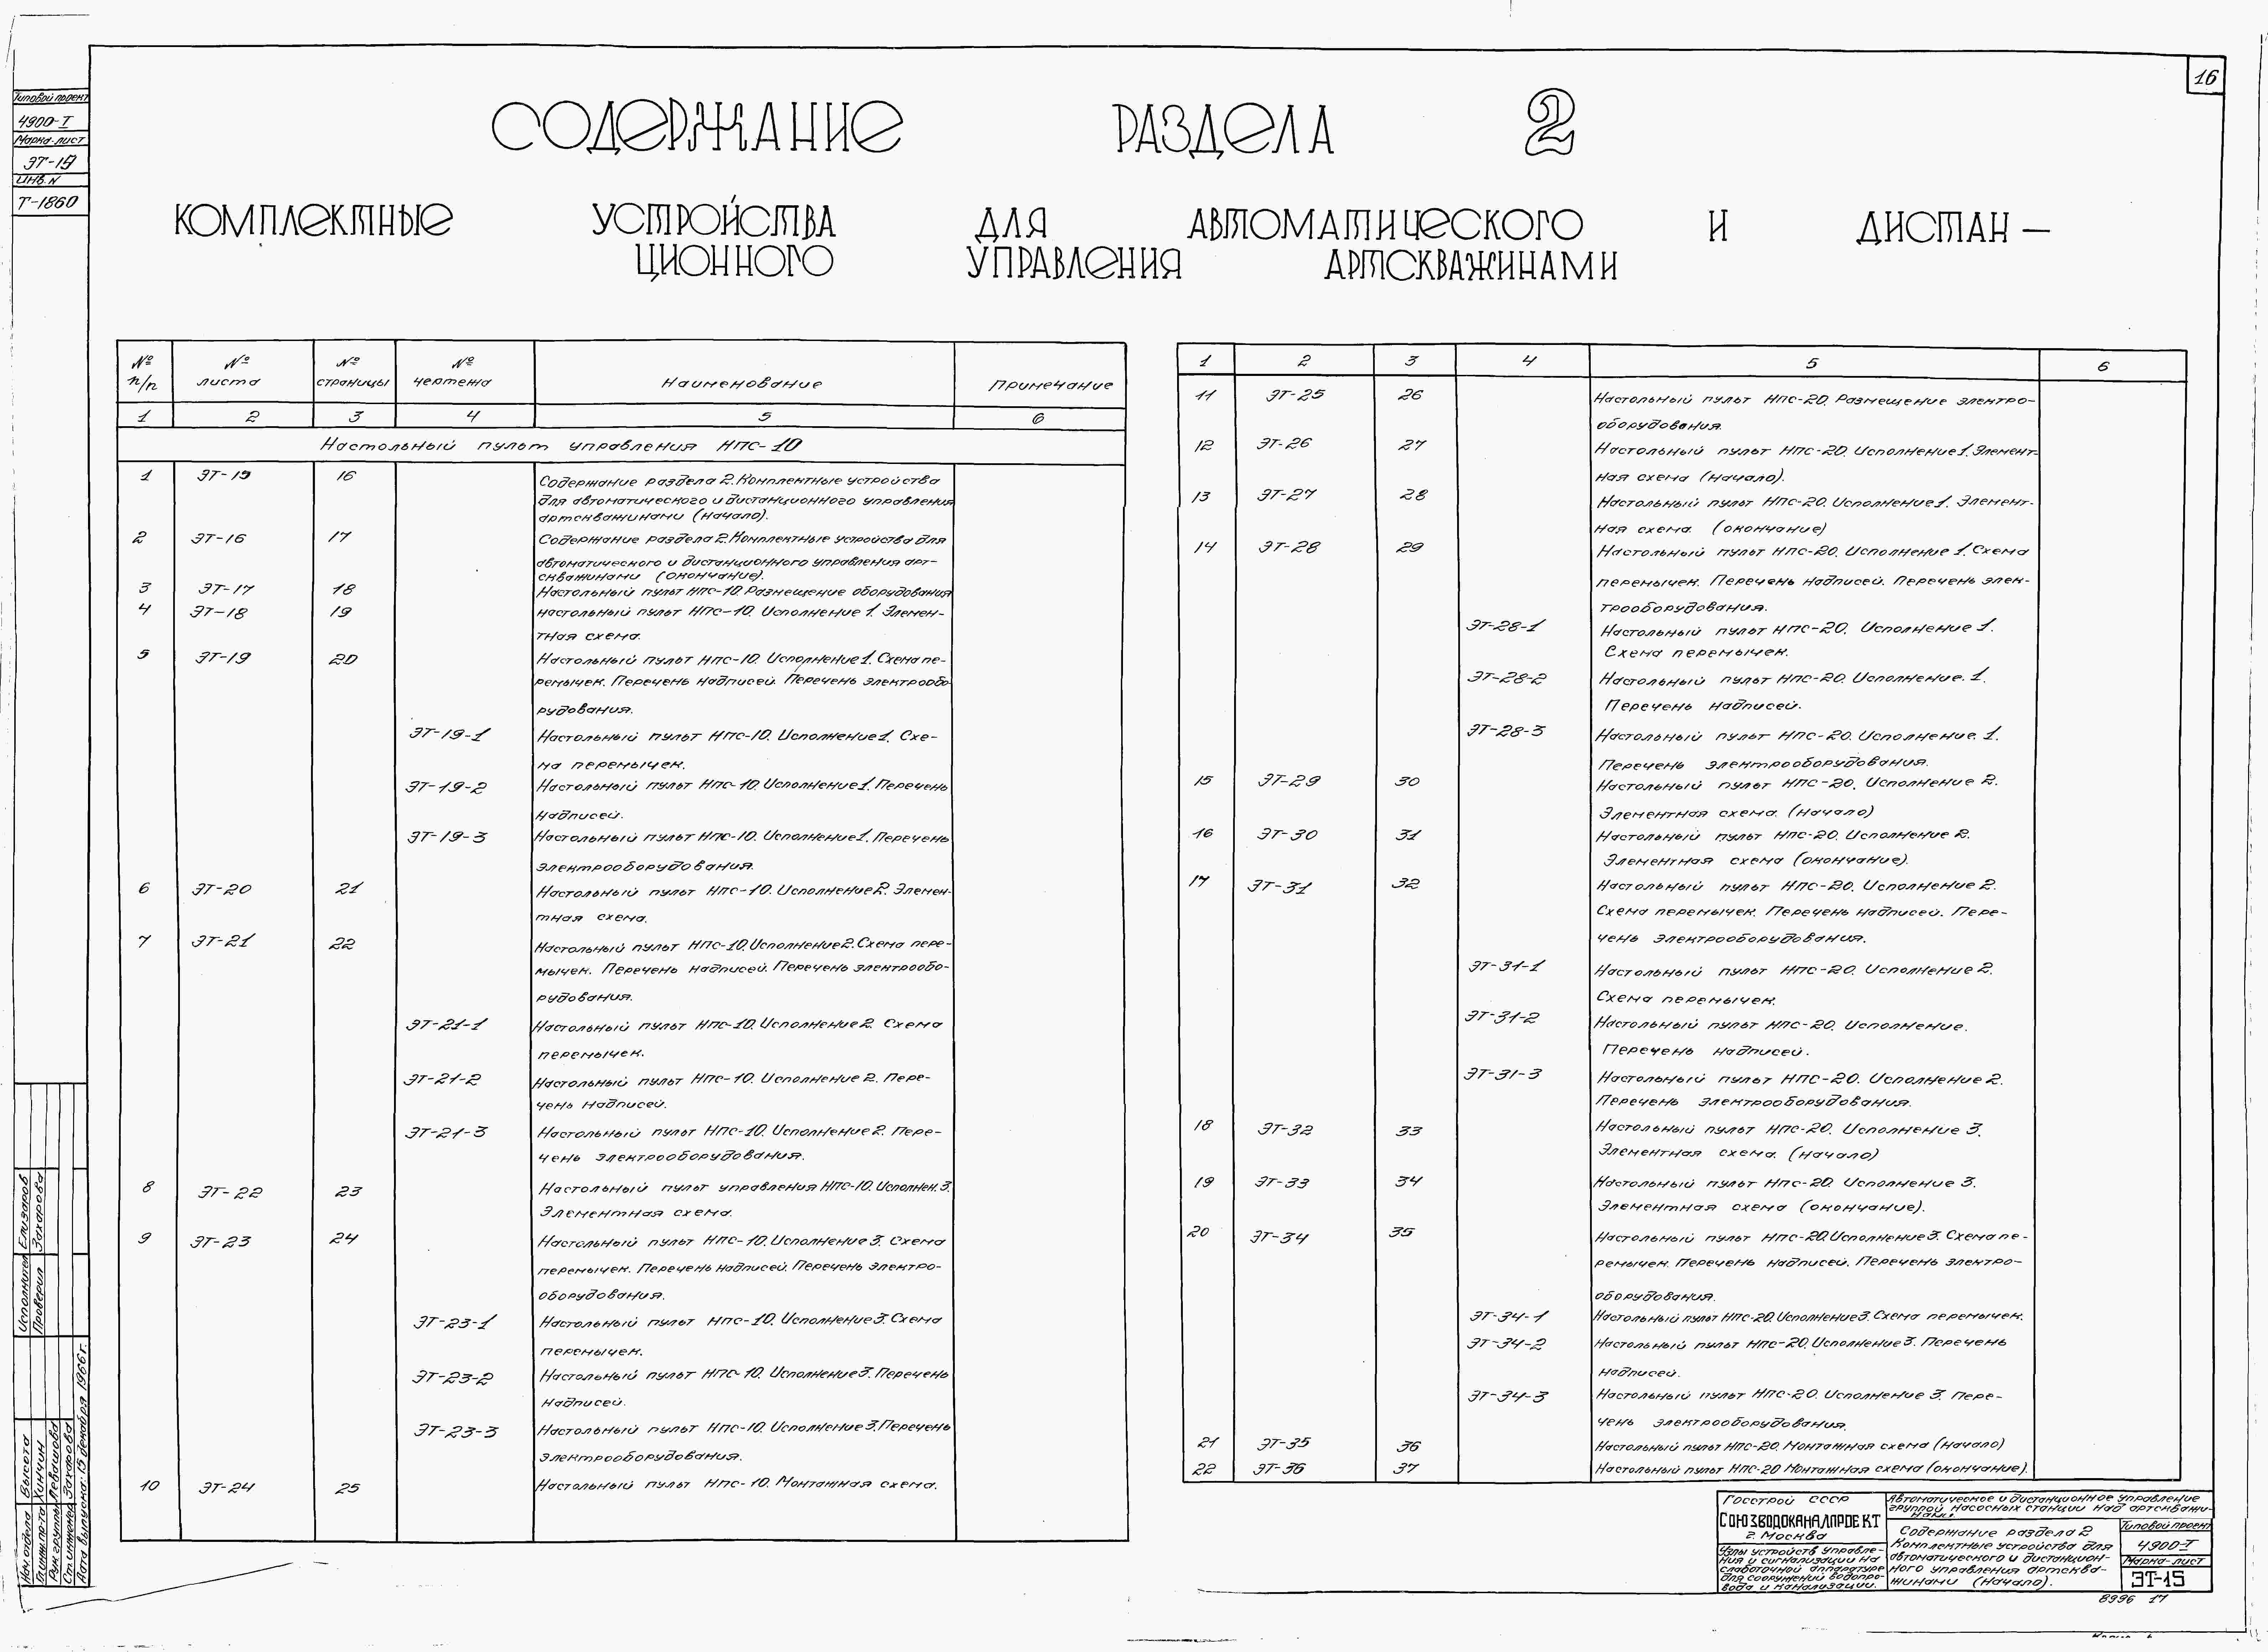 16
Типовой проект
4900-I
Марка-лист
ЭТ-15
Инв. N
Т-1860
СОДЕРЖАНИЕ РАЗДЕЛА 2
КОМПЛЕКТНЫЕ УСТРОЙСТВА ДЛЯ АВТОМАТИЧЕСКОГО И ДИСТАН-
ЦИОННОГО УПРАВЛЕНИЯ АРТСКВАЖИНАМИ
№ п/п № листа № страницы № чертежа Наименование Примечание
1 2 3 4 5 6
Настольный пульт управления НПС-10
1 ЭТ-15 16 Содержание раздела 2. Комплектные устройства
для автоматического и дистанционного управления
артскважинами (начало).
2 ЭТ-16 17 Содержание раздела 2. Комплектные устройства для
автоматического и дистанционного управления арт-
скважинами (окончание).
3 ЭТ-17 18 Настольный пульт НПС-10. Размещение оборудования
4 ЭТ-18 19 Настольный пульт НПС-10. Исполнение 1. Элемен-
тная схема.
5 ЭТ-19 20 Настольный пульт НПС-10. Исполнение 1. Схема пе-
ремычек. Перечень надписей. Перечень электрообо-
рудования.
ЭТ-19-1 Настольный пульт НПС-10. Исполнение 1. Схе-
ма перемычек.
ЭТ-19-2 Настольный пульт НПС-10. Исполнение 1. Перечень
надписей.
ЭТ-19-3 Настольный пульт НПС-10. Исполнение 1. Перечень
электрооборудования.
6 ЭТ-20 21 Настольный пульт НПС-10. Исполнение 2. Элемен-
тная схема.
7 ЭТ-21 22 Настольный пульт НПС-10. Исполнение 2. Схема пере-
мычек. Перечень надписей. Перечень электрообо-
рудования.
ЭТ-21-1 Настольный пульт НПС-10. Исполнение 2. Схема
перемычек.
ЭТ-21-2 Настольный пульт НПС-10. Исполнение 2. Пере-
чень надписей.
ЭТ-21-3 Настольный пульт НПС-10. Исполнение 2. Пере-
чень электрооборудования.
8 ЭТ-22 23 Настольный пульт управления НПС-10. Исполнен. 3.
Элементная схема.
9 ЭТ-23 24 Настольный пульт НПС-10. Исполнение 3. Схема
перемычек. Перечень надписей. Перечень электро-
оборудования.
ЭТ-23-1 Настольный пульт НПС-10. Исполнение 3. Схема
перемычек.
ЭТ-23-2 Настольный пульт НПС-10. Исполнение 3. Перечень
надписей.
ЭТ-23-3 Настольный пульт НПС-10. Исполнение 3. Перечень
электрооборудования.
10 ЭТ-24 25 Настольный пульт НПС-10. Монтажная схема.
1 2 3 4 5 6
11 ЭТ-25 26 Настольный пульт НПС-20. Размещение электро-
оборудования.
12 ЭТ-26 27 Настольный пульт НПС-20. Исполнение 1. Элемент-
ная схема (начало).
13 ЭТ-27 28 Настольный пульт НПС-20. Исполнение 1. Элемент-
ная схема. (окончание)
14 ЭТ-28 29 Настольный пульт НПС-20. Исполнение 1. Схема
перемычек. Перечень надписей. Перечень элек-
трооборудования.
ЭТ-28-1 Настольный пульт НПС-20. Исполнение 1.
Схема перемычек.
ЭТ-28-2 Настольный пульт НПС-20. Исполнение. 1.
Перечень надписей.
ЭТ-28-3 Настольный пульт НПС-20. Исполнение. 1.
Перечень электрооборудования.
15 ЭТ-29 30 Настольный пульт НПС-20. Исполнение 2.
Элементная схема. (начало)
16 ЭТ-30 31 Настольный пульт НПС-20. Исполнение 2.
Элементная схема (окончание).
17 ЭТ-31 32 Настольный пульт НПС-20. Исполнение 2.
Схема перемычек. Перечень надписей. Пере-
чень электрооборудования.
ЭТ-31-1 Настольный пульт НПС-20. Исполнение 2.
Схема перемычек.
ЭТ-31-2 Настольный пульт НПС-20. Исполнение.
Перечень надписей.
ЭТ-31-3 Настольный пульт НПС-20. Исполнение 2.
Перечень электрооборудования.
18 ЭТ-32 33 Настольный пульт НПС-20. Исполнение 3.
Элементная схема. (начало)
19 ЭТ-33 34 Настольный пульт НПС-20. Исполнение 3.
Элементная схема (окончание).
20 ЭТ-34 35 Настольный пульт НПС-20. Исполнение 3. Схема пе-
ремычек. Перечень надписей. Перечень электро-
оборудования.
ЭТ-34-1 Настольный пульт НПС-20. Исполнение 3. Схема перемычек.
ЭТ-34-2 Настольный пульт НПС-20. Исполнение 3. Перечень
надписей.
ЭТ-34-3 Настольный пульт НПС-20. Исполнение 3. Пере-
чень электрооборудования.
21 ЭТ-35 36 Настольный пульт НПС-20. Монтажная схема (начало)
22 ЭТ-36 37 Настольный пульт НПС-20 Монтажная схема (окончание).
Госстрой СССР
СОЮЗВОДОКАНАЛПРОЕКТ
г. Москва
Узлы устройств управле-
ния и сигнализации на
слаботочной аппаратуре
для сооружений водопро-
вода и канализации.
Автоматическое и дистанционное управление
группой насосных станций над артскважи-
нами.
Содержание раздела 2
Комплектные устройства для
автоматического и дистанцион-
ного управления артсква-
жинами (начало).
Типовой проект
4900-I
Марка-лист
ЭТ-15
8996 17
Исполнител Елизаров
Проверил Захарова
Нач. отдела Высота
Гл. инж. пр-та Хинчин
Рук. группы Левашова
Ст. инженер Захарова
Дата выпуска: 15 декабря 1966 г.